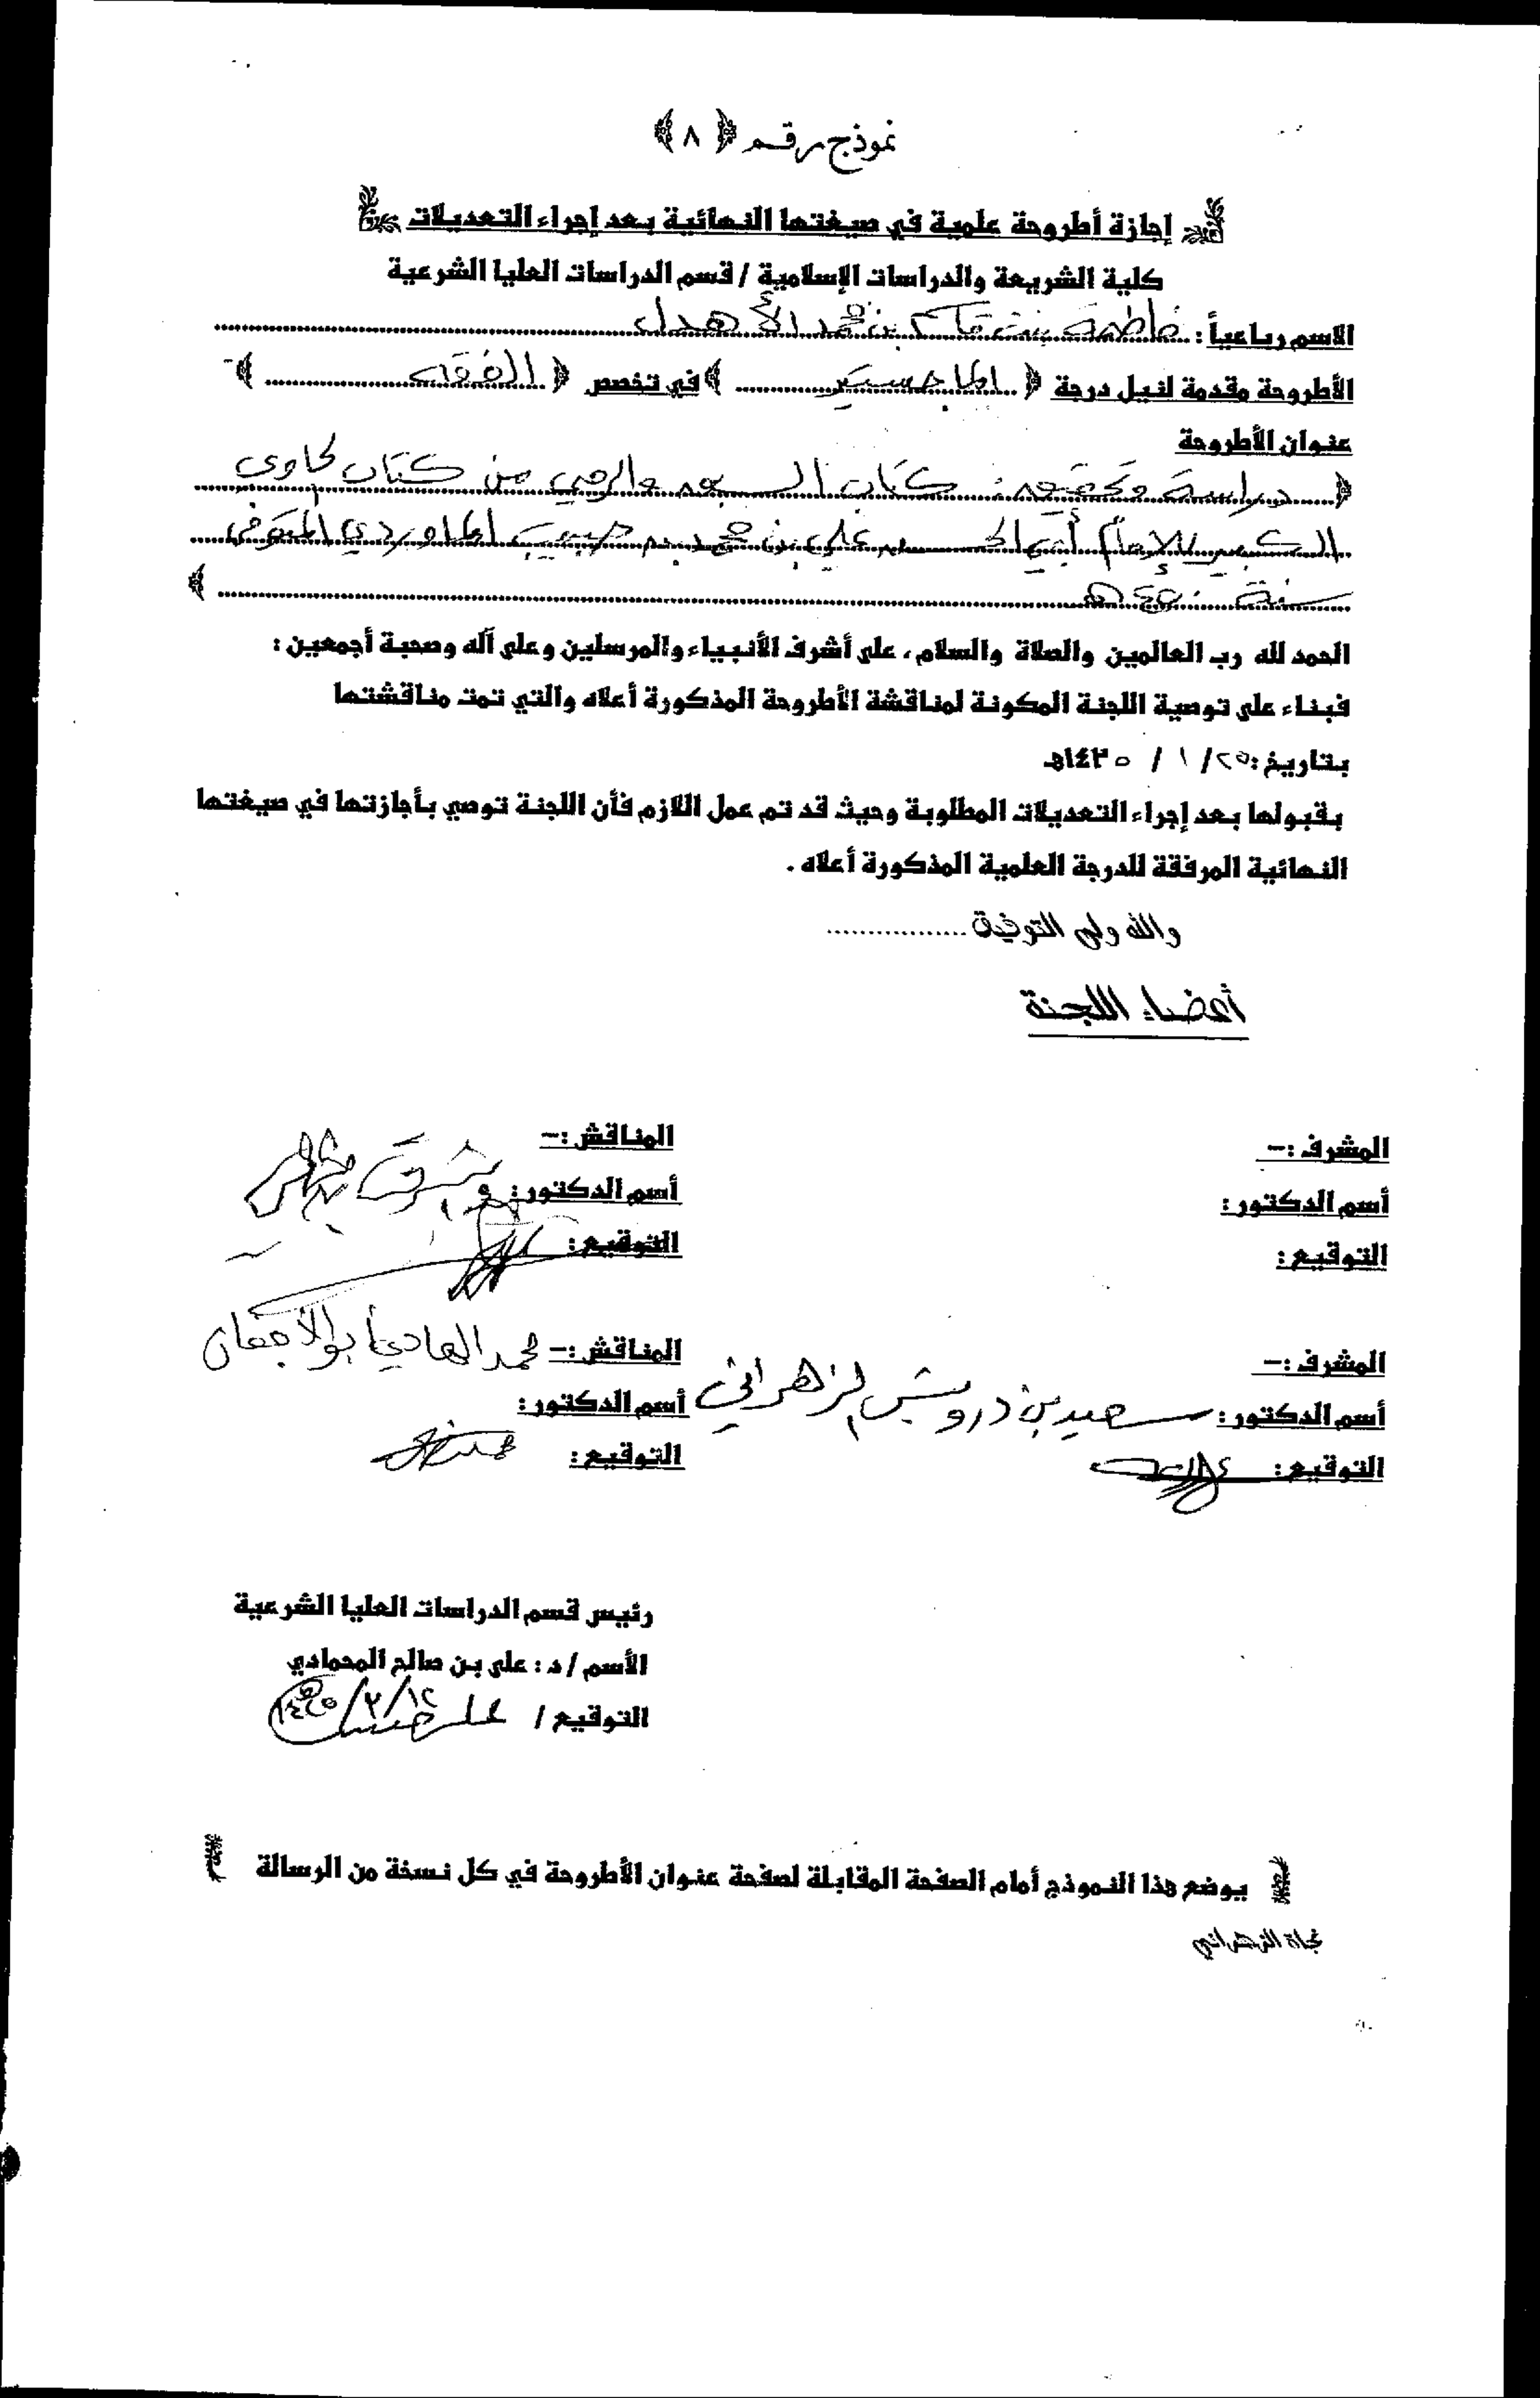 نموذج رقم ﴿ ٨ ﴾
إجازة أطروحة علمية في صيغتها النهائية بعد إجراء التعديلات
كلية الشريعة والدراسات الإسلامية / قسم الدراسات العليا الشرعية
الاسم رباعياً : فاطمة بنت قاسم بن محمد الأهدل
الأطروحة مقدمة لنيل درجة ﴿ الماجستير ﴾ في تخصص ﴿ الفقه ﴾
عنوان الأطروحة
﴿ دراسة وتحقيق : كتاب السبق والرمي من كتاب الحاوي
الكبير للإمام أبي الحسن علي بن محمد بن حبيب الماوردي المتوفى
سنة ٤٥٠ هـ ﴾
الحمد لله رب العالمين والصلاة والسلام، على أشرف الأنبياء والمرسلين وعلى آله وصحبة أجمعين :
فبناء على توصية اللجنة المكونة لمناقشة الأطروحة المذكورة أعلاه والتي تمت مناقشتها
بتاريخ : ٢٥ / ١ / ١٤٢٥هـ
بقبولها بعد إجراء التعديلات المطلوبة وحيث قد تم عمل اللازم فأن اللجنة توصي بأجازتها في صيغتها
النهائية المرفقة للدرجة العلمية المذكورة أعلاه .
والله ولي التوفيق ................
أعضاء اللجنة
المشرف :-
أسم الدكتور :
التوقيع :
المناقش :-
أسم الدكتور :
التوقيع :
المشرف :-
أسم الدكتور : سعيد بن درويش الزهراني
التوقيع :
المناقش :- محمد الهادي أبو الأجفان
أسم الدكتور :
التوقيع :
رئيس قسم الدراسات العليا الشرعية
الأسم / د : علي بن صالح المحمادي
التوقيع / ١٢ / ٢ / ١٤٢٥هـ
يوضع هذا النموذج أمام الصفحة المقابلة لصفحة عنوان الأطروحة في كل نسخة من الرسالة
نجاة الزهراني